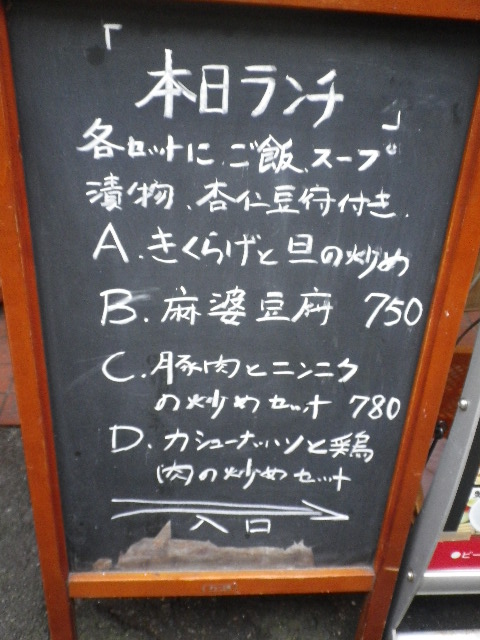 「本日ランチ」
各セットに、ご飯、スープ
漬物、杏仁豆府付き.
A.きくらげと旦の炒め
B.麻婆豆腐 750
C.豚肉とニンニク
の炒めセット 780
D.カシューナッハソと鶏
肉の炒めセット
入口
ビー